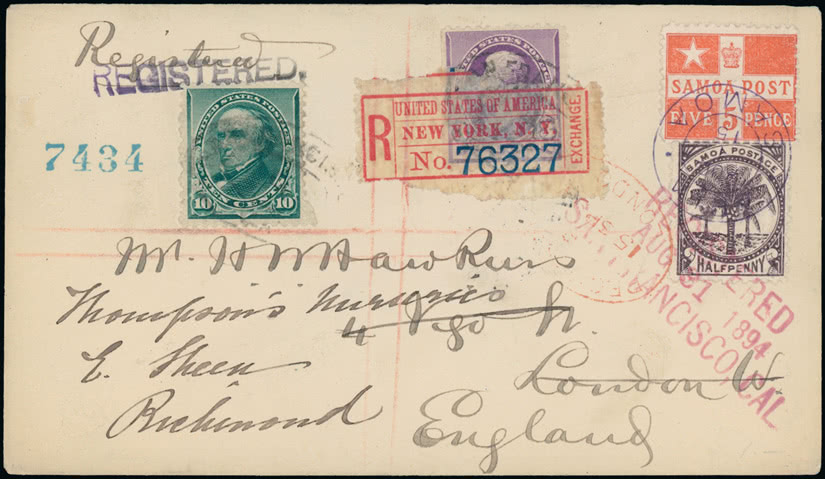 Registered
REGISTERED.
7434
UNITED STATES POSTAGE
TEN CENTS
10 10
UNITED STATES POSTAGE
R
UNITED STATES OF AMERICA,
NEW YORK, N.Y.
No. 76327
EXCHANGE.
SAMOA POST
FIVE 5 PENCE
SAMOA POSTAGE
HALFPENNY
REGISTERED
AUG 31 1894
SAN FRANCISCO, CAL
Mr. H W Hawkins
Thompson's Nurseries
4
St.
E. Sheen
London W.
Richmond
England